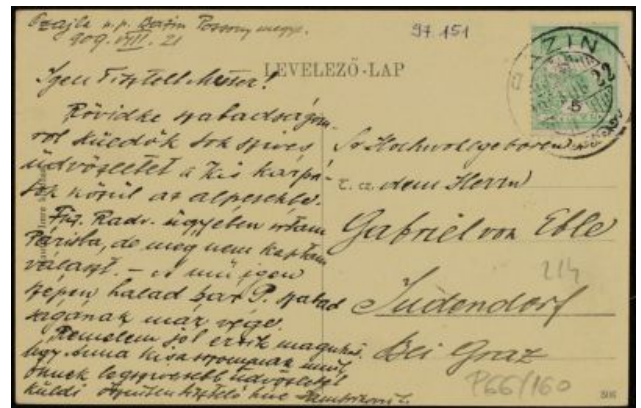 Ozajla u.p. Bazin Pozsony megye.
909. VIII. 21
97.151
LEVELEZŐ-LAP
BAZIN
22
Igen Tisztelt Mester!
Rövidke szabadságom-
ról küldök sok szives
üdvözletet a Kis Kárpá-
tok közül az alpesekbe.
Fig. Radv. ügyében irtam
Párisba, de meg nem kaptam
választ. — A mü igen
szepen halad bar P. szabad
ságának már vége.
Remelem jol erzik magukat
úgy Anna kisasszonynak mint
önnek legszivesebb üdvözletét
küldi őszintén tisztelő hive
Sr Hochwohlgeboren
T. cz. dem Herrn
Gabriel von Eble
214
Judendorf
Bei Graz
P66/160